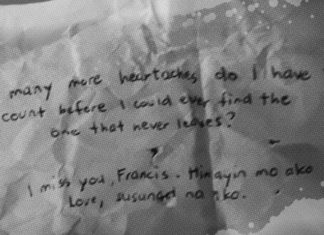 many more heartaches do I have
count before I could ever find the
one that never leaves?
I miss you, Francis. Hintayin mo ako
Love, susunod na ako.